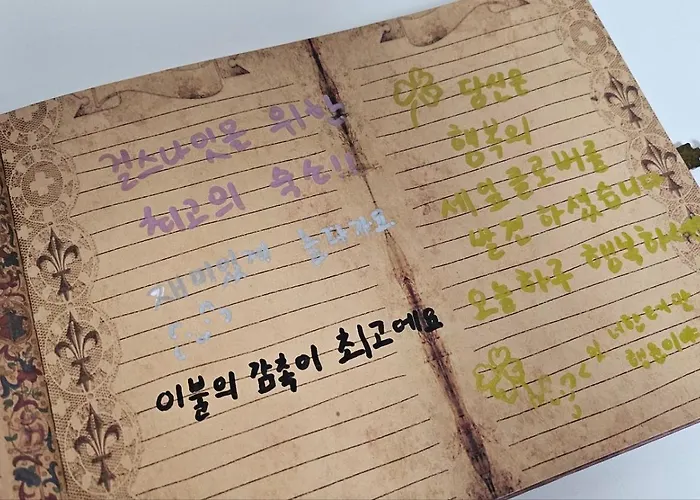 걸스나잇을 위한
최고의 숙소!!
재미있게 놀다가요
이불의 감촉이 최고에요
당신은
행복의
세잎클로버를
발견 하셨습니다
오늘하루 행복하세